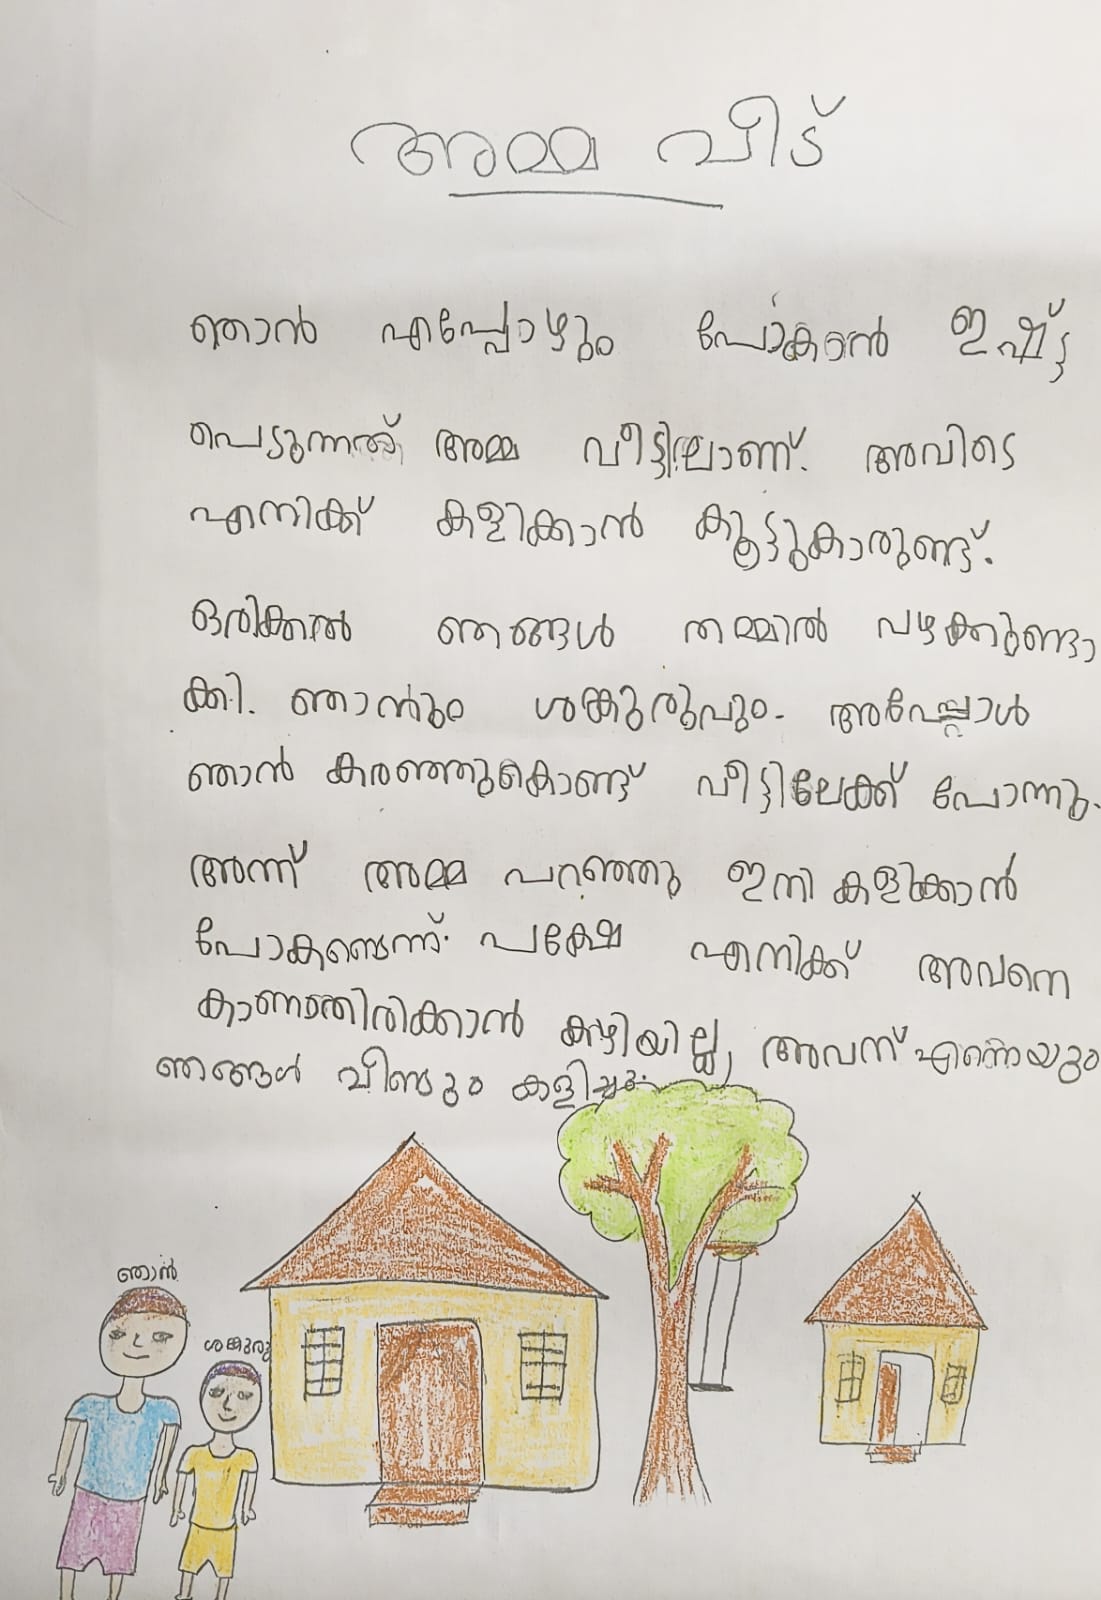 അമ്മ വീട്
ഞാൻ എപ്പോഴും പോകാൻ ഇഷ്ട്ട
പെടുന്നത് അമ്മ വീട്ടിലാണ്. അവിടെ
എനിക്ക് കളിക്കാൻ കൂട്ടുകാരുണ്ട്.
ഒരിക്കൽ ഞങ്ങൾ തമ്മിൽ പഴക്കുണ്ടാ
ക്കി. ഞാനും ശങ്കുരുവും. അപ്പോൾ
ഞാൻ കരഞ്ഞുകൊണ്ട് വീട്ടിലേക്ക് പോന്നു.
അന്ന് അമ്മ പറഞ്ഞു ഇനി കളിക്കാൻ
പോകണ്ടെന്ന്. പക്ഷേ എനിക്ക് അവനെ
കാണാതിരിക്കാൻ കഴിയില്ല, അവന് എന്നെയും
ഞങ്ങൾ വീണ്ടും കളിച്ചു.
ഞാൻ
ശങ്കുരു